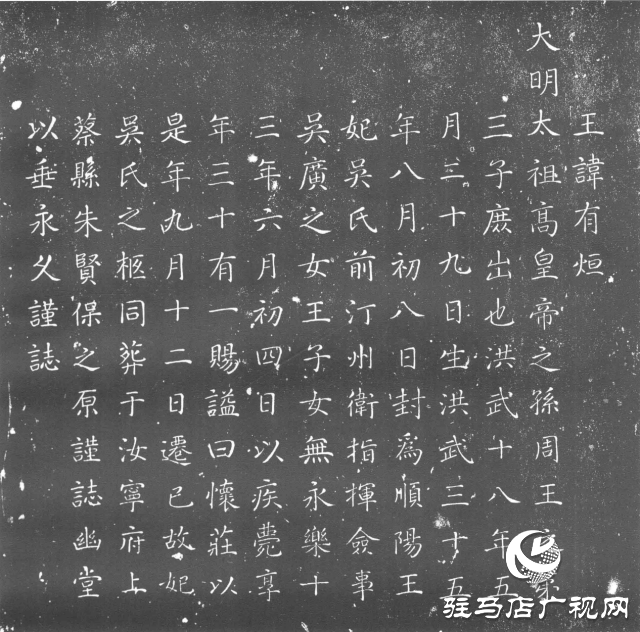 王諱有烜
大明太祖高皇帝之孫周王
三子庶出也洪武十八年五
月二十九日生洪武三十五
年八月初八日封爲順陽王
妃吳氏前汀州衛指揮僉事
吳廣之女王子女無永樂十
三年六月初四日以疾薨享
年三十有一賜謚曰懷莊以
是年九月十二日遷已故妃
吳氏之柩同葬于汝寧府上
蔡縣朱賢保之原謹誌幽堂
以垂永久謹誌
驻马店广视网